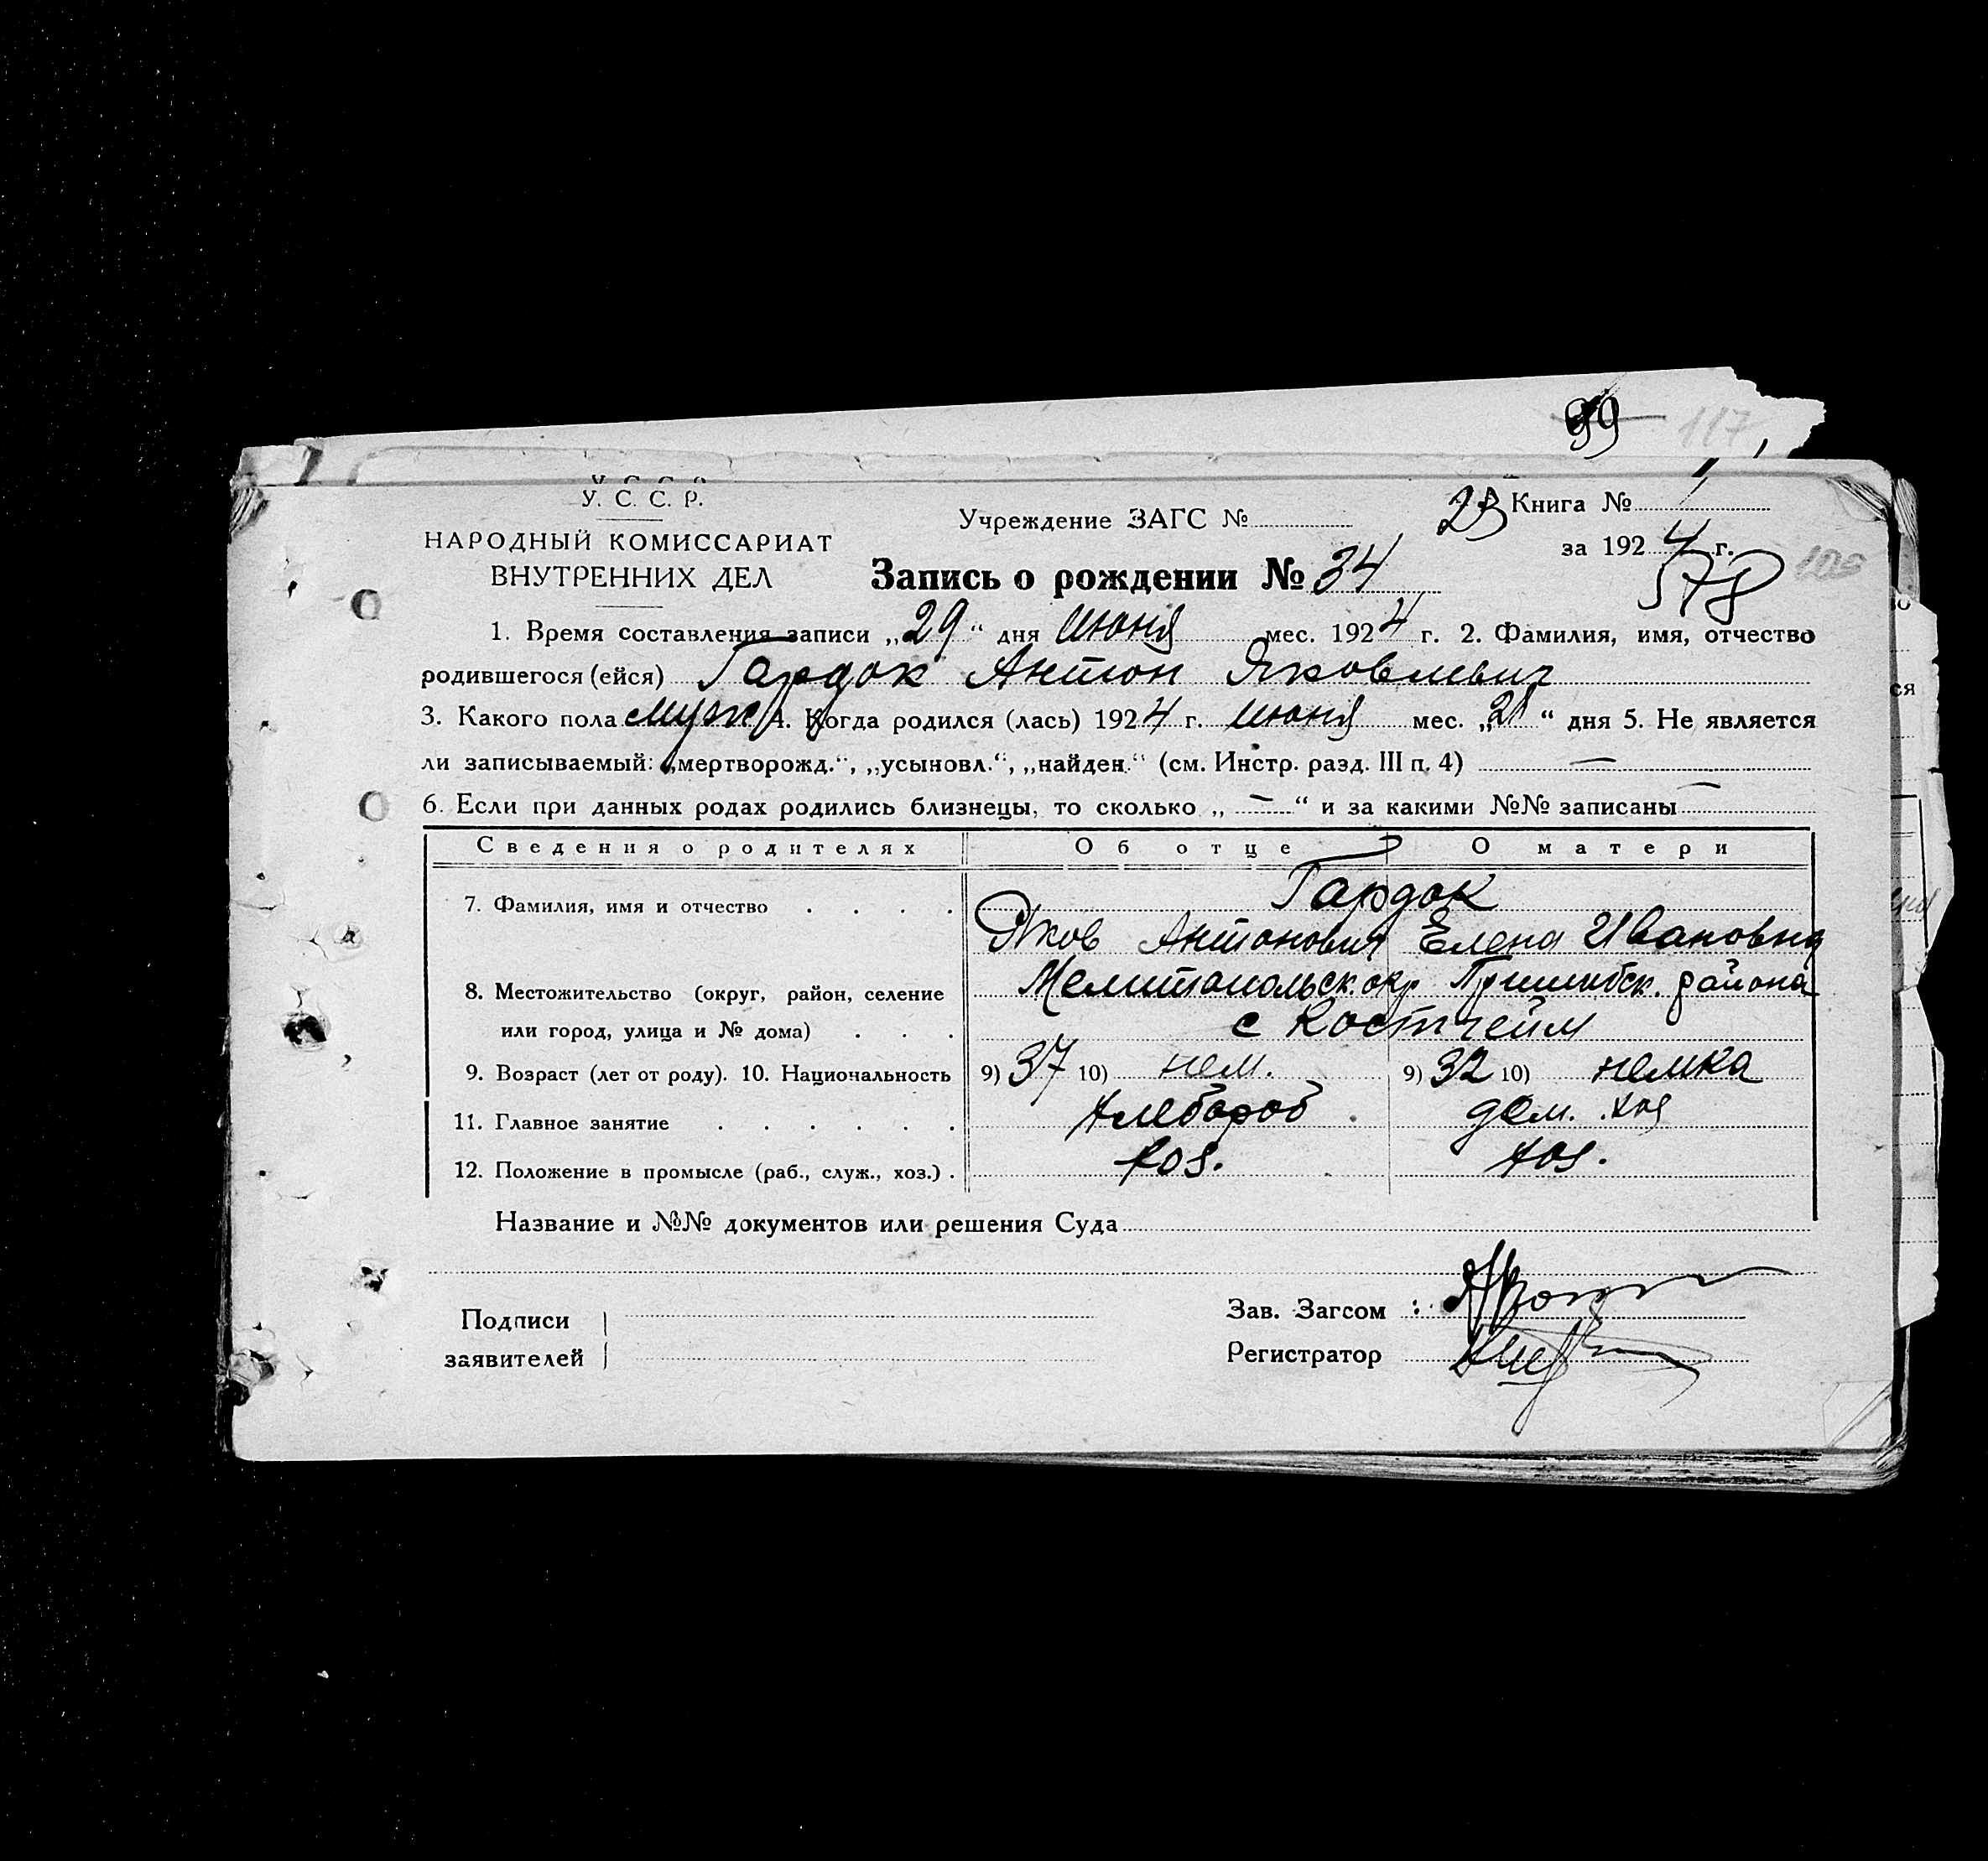 99 117
У. С. С. Р.
НАРОДНЫЙ КОМИССАРИАТ
ВНУТРЕННИХ ДЕЛ
Учреждение ЗАГС №
23 Книга № 1
за 1924 г.
578
Запись о рождении № 34
1. Время составления записи „29“ дня Июня мес. 1924 г. 2. Фамилия, имя, отчество
родившегося (ейся) Гардок Антон Яковлевич
3. Какого пола муж 4. Когда родился (лась) 1924 г. Июня мес. „28“ дня 5. Не является
ли записываемый: „мертворожд.“, „усыновл.“, „найден.“ (см. Инстр. разд. III п. 4) —
6. Если при данных родах родились близнецы, то сколько „ — “ и за какими №№ записаны —
Сведения о родителях Об отце О матери
7. Фамилия, имя и отчество . . . . Гардок
Яков Антонович Елена Ивановна
8. Местожительство (округ, район, селение Мелитопольск. окр Пришибск. района
или город, улица и № дома) . . . с Костгейм
9. Возраст (лет от роду). 10. Национальность 9) 37 10) нем. 9) 32 10) немка
11. Главное занятие . . . . . . Хлебороб дом. хоз
12. Положение в промысле (раб., служ., хоз.) . хоз. хоз.
Название и №№ документов или решения Суда
Подписи
заявителей
Зав. Загсом :
Регистратор